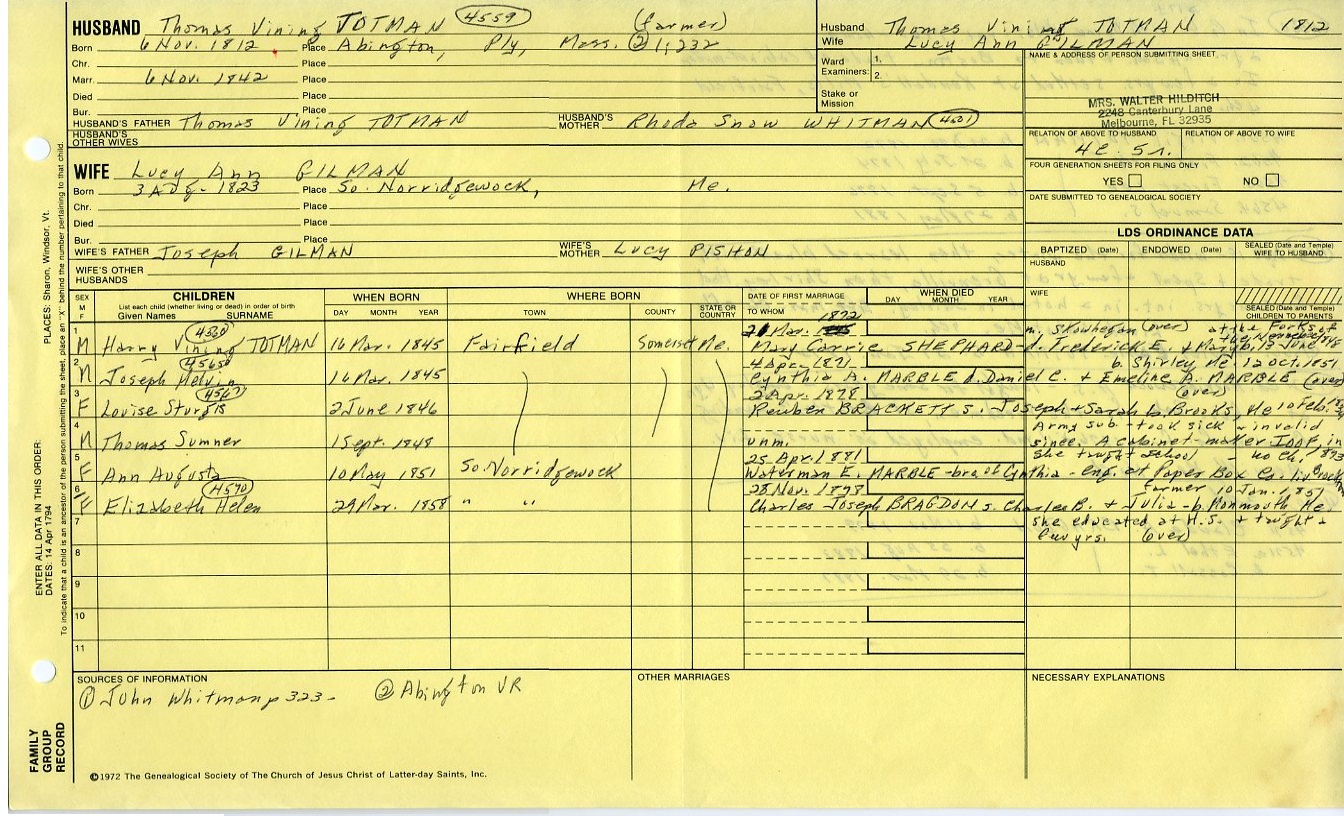 HUSBAND Thomas Vining TOTMAN 4559 (farmer)
Born 6 Nov. 1812 Place Abington, Ply, Mass. ② 1, 232
Chr. Place
Marr. 6 Nov. 1842 Place
Died Place
Bur. Place
HUSBAND'S FATHER Thomas Vining TOTMAN HUSBAND'S MOTHER Rhoda Snow WHITMAN 4501
HUSBAND'S OTHER WIVES
WIFE Lucy Ann GILMAN
Born 3 Aug - 1823 Place So. Norridgewock, Me.
Chr. Place
Died Place
Bur. Place
WIFE'S FATHER Joseph GILMAN WIFE'S MOTHER Lucy PISHON
WIFE'S OTHER HUSBANDS
Husband Thomas Vining TOTMAN 1812
Wife Lucy Ann GILMAN
Ward Examiners: 1. 2.
Stake or Mission
NAME & ADDRESS OF PERSON SUBMITTING SHEET
MRS. WALTER HILDITCH
2248 Canterbury Lane
Melbourne, FL 32935
RELATION OF ABOVE TO HUSBAND RELATION OF ABOVE TO WIFE
4c. 5r.
FOUR GENERATION SHEETS FOR FILING ONLY
YES NO
DATE SUBMITTED TO GENEALOGICAL SOCIETY
LDS ORDINANCE DATA
BAPTIZED (Date) ENDOWED (Date) SEALED (Date and Temple) WIFE TO HUSBAND
HUSBAND
WIFE
SEALED (Date and Temple) CHILDREN TO PARENTS
SEX M F CHILDREN List each child (whether living or dead) in order of birth Given Names SURNAME WHEN BORN DAY MONTH YEAR WHERE BORN TOWN COUNTY STATE OR COUNTRY DATE OF FIRST MARRIAGE TO WHOM WHEN DIED DAY MONTH YEAR
1 M Harry Vining TOTMAN 4560 16 Mar. 1845 Fairfield Somerset Me. Mar. 1872 m. Skowhegan (over) at the Forks of the Kennebec
Mary Carrie SHEPHARD - d. Frederick E. + Mar. b. 13 June
2 M Joseph Melvin 4565 16 Mar. 1845 4 Apr. 1871 b. Shirley Me. 12 Oct. 1851
Cynthia A. MARBLE d. Daniel C. + Emeline A. MARBLE (over)
3 F Louise Sturgis 4567 2 June 1846 2 Apr. 1878 (over)
Reuben BRACKETT s. Joseph + Sarah b. Brooks, Me 10 Feb.
4 M Thomas Sumner 1 Sept. 1848 unm. Army sub - took sick - invalid since. A cabinet-maker IOOF in
5 F Ann Augusta 10 May 1851 So. Norridgewock 25 Apr. 1881 She taught school - no ch. 1893
Waterman E. MARBLE - bro. of Cynthia - eng. at Paper Box Co. liv. Brock
6 F Elizabeth Helen 4570 29 Mar. 1858 " " 28 Nov. 1878 farmer 10 Jan. 1851
Charles Joseph BRAGDON s. Charles B. + Julia - b. Monmouth Me.
She educated at H.S. + taught a few yrs. (over)
7
8
9
10
11
SOURCES OF INFORMATION
① John Whitman p 323 - ② Abington VR
OTHER MARRIAGES
NECESSARY EXPLANATIONS
©1972 The Genealogical Society of The Church of Jesus Christ of Latter-day Saints, Inc.
FAMILY GROUP RECORD
ENTER ALL DATA IN THIS ORDER:
DATES: 14 Apr 1794
PLACES: Sharon, Windsor, Vt.
To indicate that a child is an ancestor of the person submitting the sheet, place an "X" behind the number pertaining to that child.